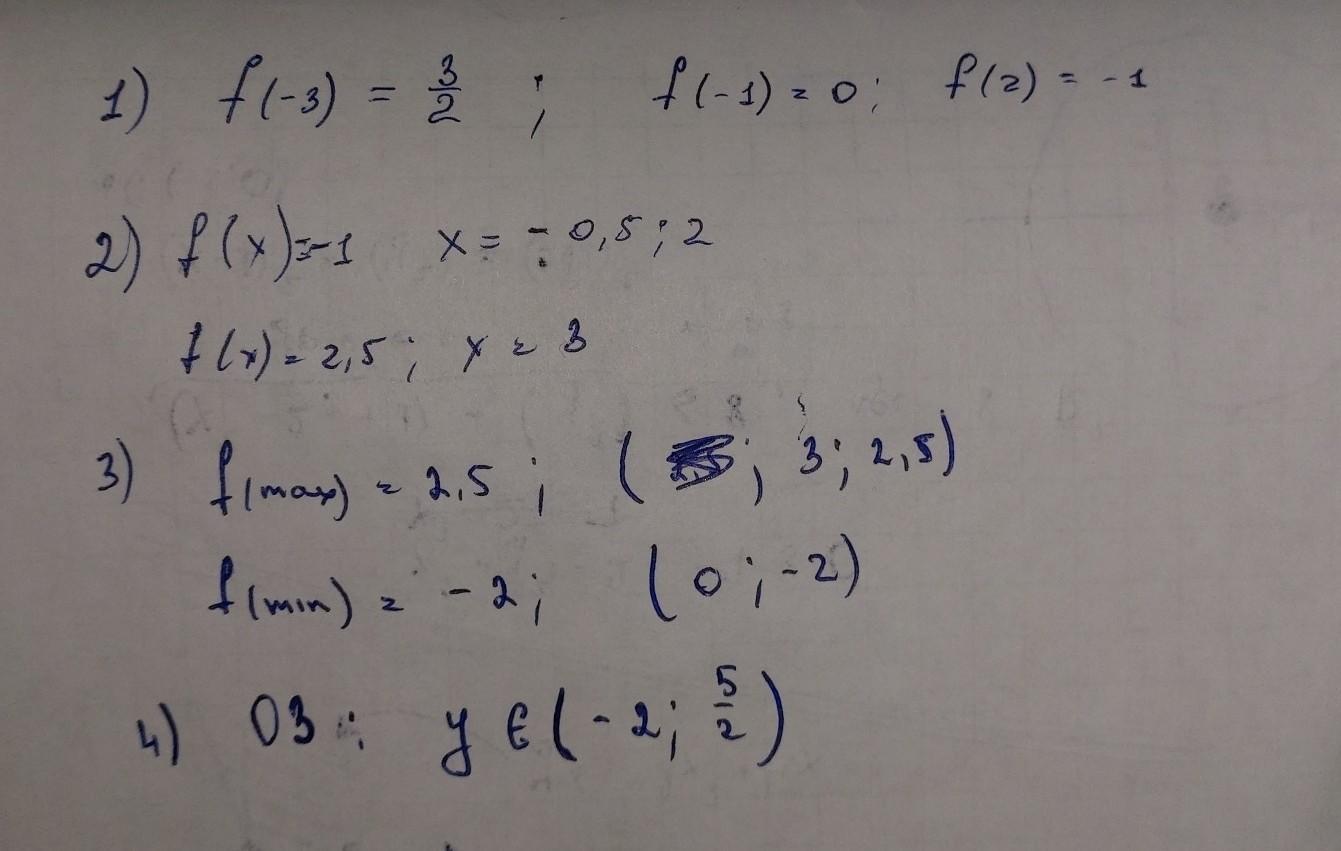 1) f(-3) = 3/2 ; f(-1) = 0 ; f(2) = -1
2) f(x)=-1 x = -0,5 ; 2
f(x) = 2,5 ; x = 3
3) f(max) = 2,5 ; ( ; 3 ; 2,5)
f(min) = -2 ; (0 ; -2)
4) ОЗ : y ∈ (-2 ; 5/2)